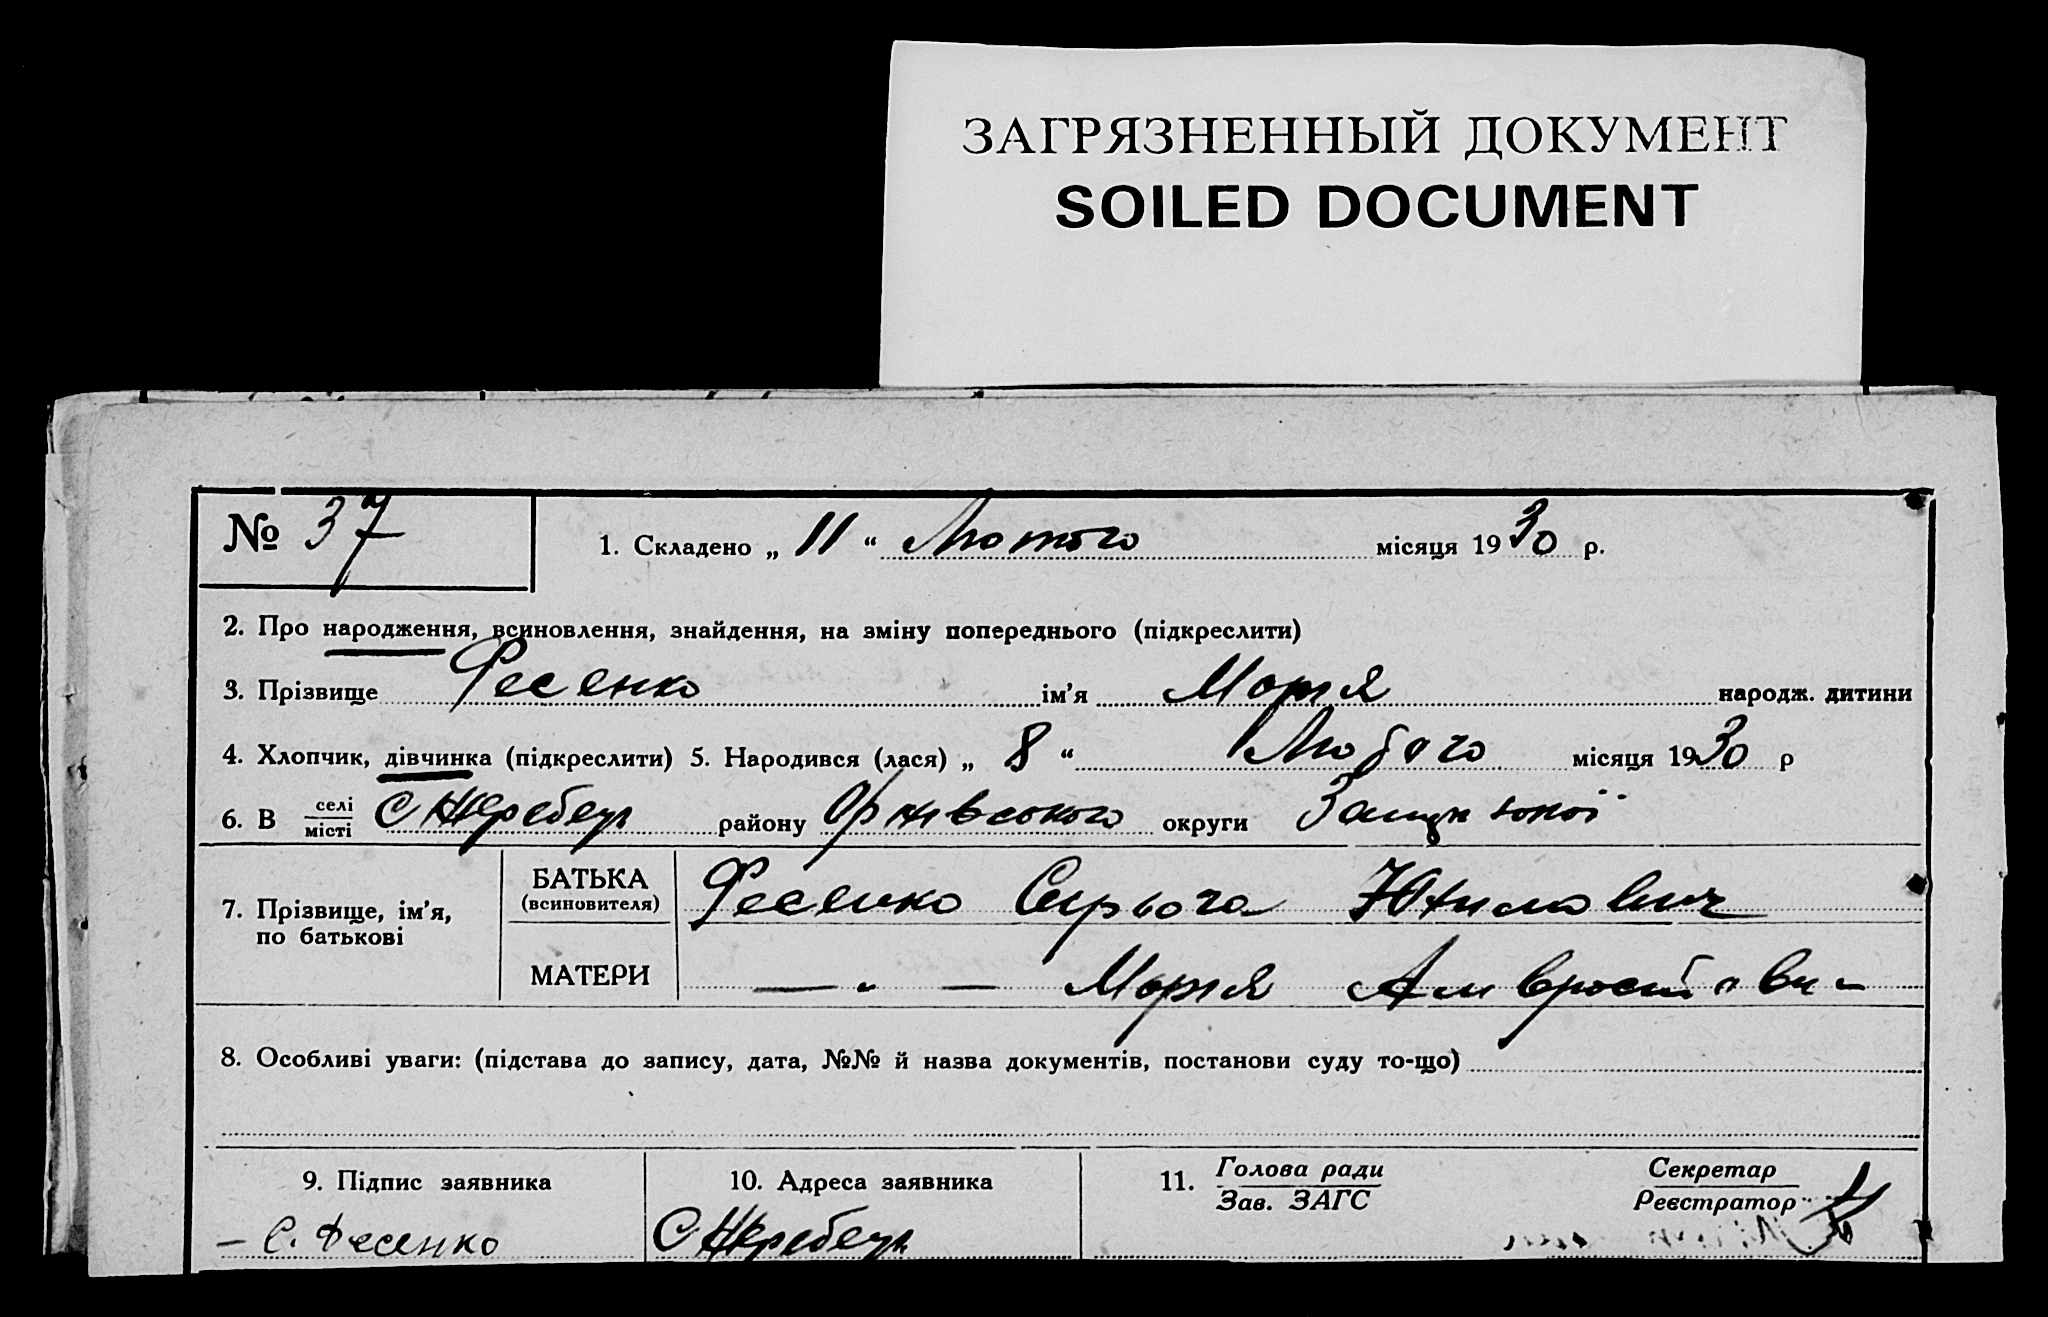 ЗАГРЯЗНЕННЫЙ ДОКУМЕНТ
SOILED DOCUMENT
№ 37
1. Складено „ 11 “ Лютого місяця 1930 р.
2. Про народження, всиновлення, знайдення, на зміну попереднього (підкреслити)
3. Прізвище Фесенко ім'я Марія народж. дитини
4. Хлопчик, дівчинка (підкреслити) 5. Народився (лася) „ 8 “ Лютого місяця 1930 р
6. В селі місті С Жеребець району Оріхівського округи
7. Прізвище, ім'я, по батькові
БАТЬКА (всиновителя) Фесенко
МАТЕРИ — „ — Марія
8. Особливі уваги: (підстава до запису, дата, №№ й назва документів, постанови суду то-що)
9. Підпис заявника
10. Адреса заявника
11. Голова ради Зав. ЗАГС
Секретар Реєстратор
– С. Фесенко
С Жеребець